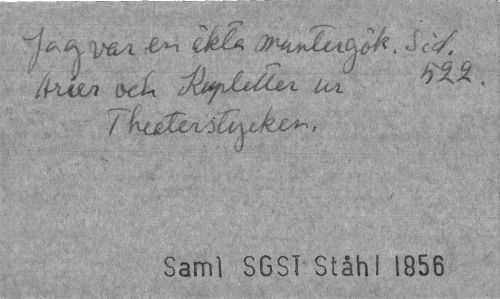 Jag var en äkta muntergök. Sid.
Arier och Kupletter ur 522.
Theaterstycken.
Saml SGST Ståhl 1856